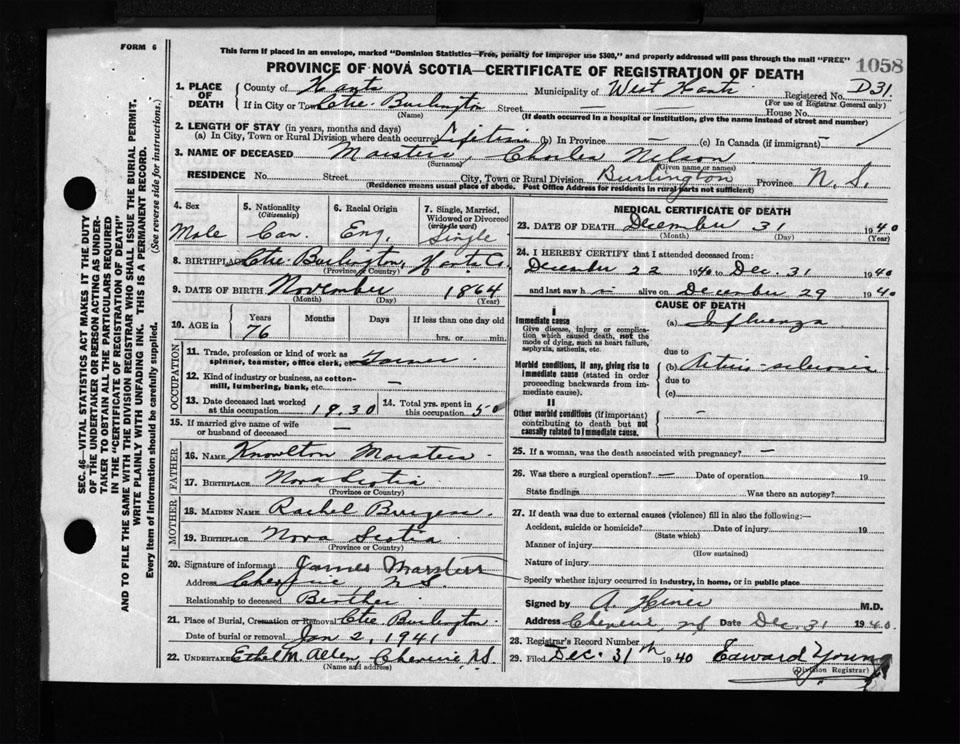 FORM 6
This form if placed in an envelope, marked "Dominion Statistics—Free, penalty for improper use $300," and properly addressed will pass through the mail "FREE"
PROVINCE OF NOVA SCOTIA—CERTIFICATE OF REGISTRATION OF DEATH
1058
1. PLACE OF DEATH
County of Hants Municipality of West Hants Registered No. D31.
(For use of Registrar General only)
If in City or Town Ctre. Burlington Street — House No.
(Name) (If death occurred in a hospital or institution, give the name instead of street and number)
2. LENGTH OF STAY (in years, months and days)
(a) In City, Town or Rural Division where death occurred Lifetime (b) In Province — (c) In Canada (if immigrant) —
3. NAME OF DECEASED Marsters, Charles Nelson
(Surname) (Given name or names)
RESIDENCE No. Street City, Town or Rural Division Burlington Province N.S.
(Residence means usual place of abode. Post Office Address for residents in rural parts not sufficient)
4. Sex Male
5. Nationality (Citizenship) Can.
6. Racial Origin Eng.
7. Single, Married, Widowed or Divorced (write the word) Single
8. BIRTHPLACE Ctre. Burlington, Hants Co.
(Province or Country)
9. DATE OF BIRTH November 1864
(Month) (Day) (Year)
10. AGE in Years 76 Months Days If less than one day old
hrs. or min.
OCCUPATION
11. Trade, profession or kind of work as spinner, teamster, office clerk, etc. Farmer
12. Kind of industry or business, as cotton-mill, lumbering, bank, etc. —
13. Date deceased last worked at this occupation 1930
14. Total yrs. spent in this occupation 50
15. If married give name of wife or husband of deceased —
FATHER
16. NAME Knowlton Marsters
17. BIRTHPLACE Nova Scotia
(Province or Country)
MOTHER
18. MAIDEN NAME Rachel Burgess.
19. BIRTHPLACE Nova Scotia
(Province or Country)
20. Signature of informant James Marsters
Address Cheverie, N S
Relationship to deceased Brother
21. Place of Burial, Cremation or Removal Ctre Burlington.
Date of burial or removal Jan 2, 1941
22. UNDERTAKER Ethel M. Allen, Cheverie N.S.
(Name and address)
MEDICAL CERTIFICATE OF DEATH
23. DATE OF DEATH December 31 1940
(Month) (Day) (Year)
24. I HEREBY CERTIFY that I attended deceased from:
December 22 1940 to Dec. 31 1940
and last saw h im alive on December 29 1940
CAUSE OF DEATH
I
Immediate cause
Give disease, injury or complication which caused death, not the mode of dying, such as heart failure, asphyxia, asthenia, etc.
(a) Influenza
due to
Morbid conditions, if any, giving rise to immediate cause (stated in order proceeding backwards from immediate cause).
(b) Arterio-sclerosis
due to
(c)
II
Other morbid conditions (if important) contributing to death but not causally related to immediate cause.
—
25. If a woman, was the death associated with pregnancy? —
26. Was there a surgical operation? — Date of operation 19
State findings Was there an autopsy?
27. If death was due to external causes (violence) fill in also the following:—
Accident, suicide or homicide? Date of injury 19
(State which)
Manner of injury
(How sustained)
Nature of injury
Specify whether injury occurred in industry, in home, or in public place
Signed by A. M.D.
Address Cheverie, NS Date Dec. 31 1940.
28. Registrar's Record Number
29. Filed Dec. 31th 1940 Edward Young
(Division Registrar)
SEC. 46—VITAL STATISTICS ACT MAKES IT THE DUTY
OF THE UNDERTAKER OR PERSON ACTING AS UNDER-
TAKER TO OBTAIN ALL THE PARTICULARS REQUIRED
IN THE "CERTIFICATE OF REGISTRATION OF DEATH"
AND TO FILE THE SAME WITH THE DIVISION REGISTRAR WHO SHALL ISSUE THE BURIAL PERMIT.
WRITE PLAINLY WITH UNFADING INK. THIS IS A PERMANENT RECORD.
Every item of information should be carefully supplied. (See reverse side for instructions.)